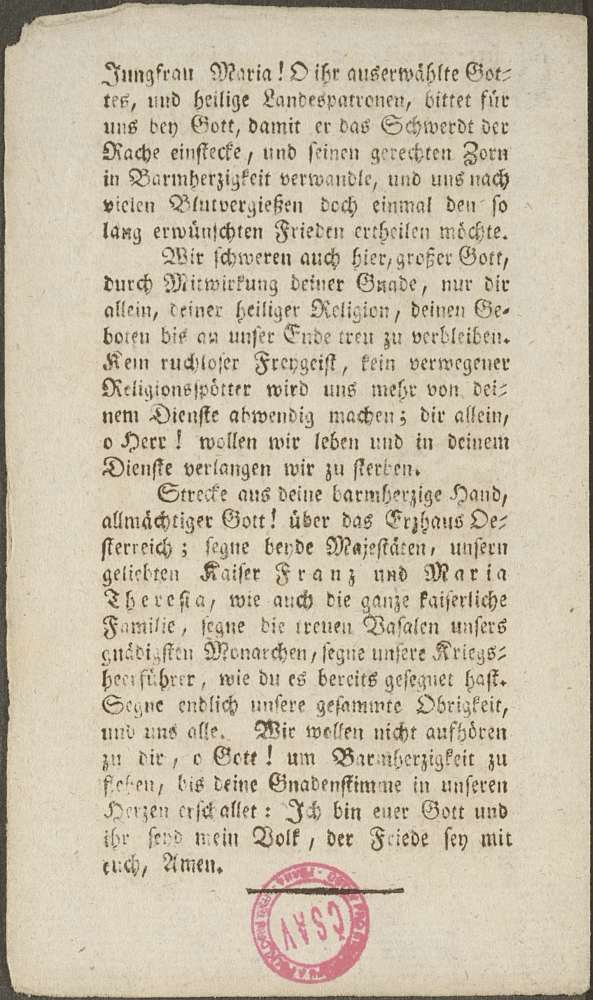 Jungfrau Maria! O ihr auserwählte Got⸗
tes, und heilige Landespatronen, bittet für
uns bey Gott, damit er das Schwerdt der
Rache einstecke, und seinen gerechten Zorn
in Barmherzigkeit verwandle, und uns nach
vielen Blutvergießen doch einmal den so
lang erwünschten Frieden ertheilen möchte.
Wir schweren auch hier, großer Gott,
durch Mitwirkung deiner Gnade, nur dir
allein, deiner heiliger Religion, deinen Ge⸗
boten bis an unser Ende treu zu verbleiben.
Kein ruchloser Freygeist, kein verwegener
Religionsspötter wird uns mehr von dei⸗
nem Dienste abwendig machen; dir allein,
o Herr! wollen wir leben und in deinem
Dienste verlangen wir zu sterben.
Strecke aus deine barmherzige Hand,
allmächtiger Gott! über das Erzhaus Oe⸗
sterreich; segne beyde Majestäten, unsern
geliebten Kaiser Franz und Maria
Theresia, wie auch die ganze kaiserliche
Familie, segne die treuen Vasalen unsers
gnädigsten Monarchen, segne unsere Kriegs⸗
heerführer, wie du es bereits gesegnet hast.
Segne endlich unsere gesammte Obrigkeit,
und uns alle. Wir wollen nicht aufhören
zu dir, o Gott! um Barmherzigkeit zu
flehen, bis deine Gnadenstimme in unseren
Herzen erschallet: Ich bin euer Gott und
ihr seyd mein Volk, der Friede sey mit
euch, Amen.
ČSAV